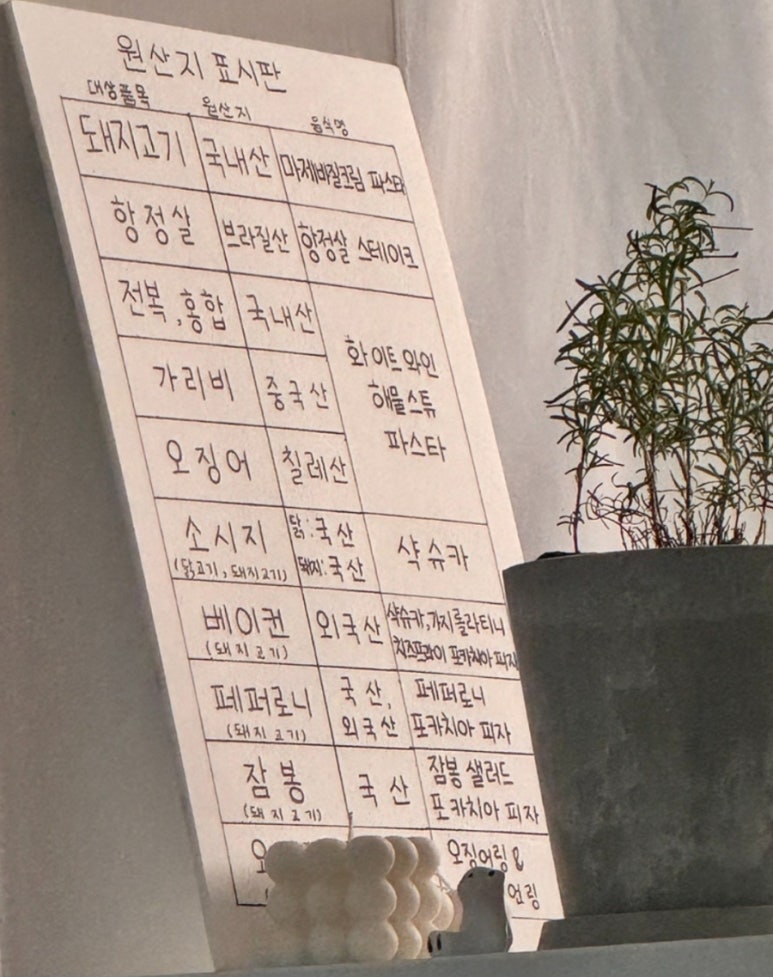 원산지 표시판
대상품목 원산지 음식명
돼지고기 국내산 마제바질크림 파스타
항정살 브라질산 항정살 스테이크
전복, 홍합 국내산
화이트와인
해물스튜
파스타
가리비 중국산
오징어 칠레산
소시지
(닭고기, 돼지고기)
닭:국산
돼지:국산
샥슈카
베이컨
(돼지고기)
외국산
샥슈카, 가지롤라티니
치즈프라이 포카치아 피자
페퍼로니
(돼지고기)
국산,
외국산
페퍼로니
포카치아 피자
잠봉
(돼지고기)
국산
잠봉 샐러드
포카치아 피자
오징어링 &
언링